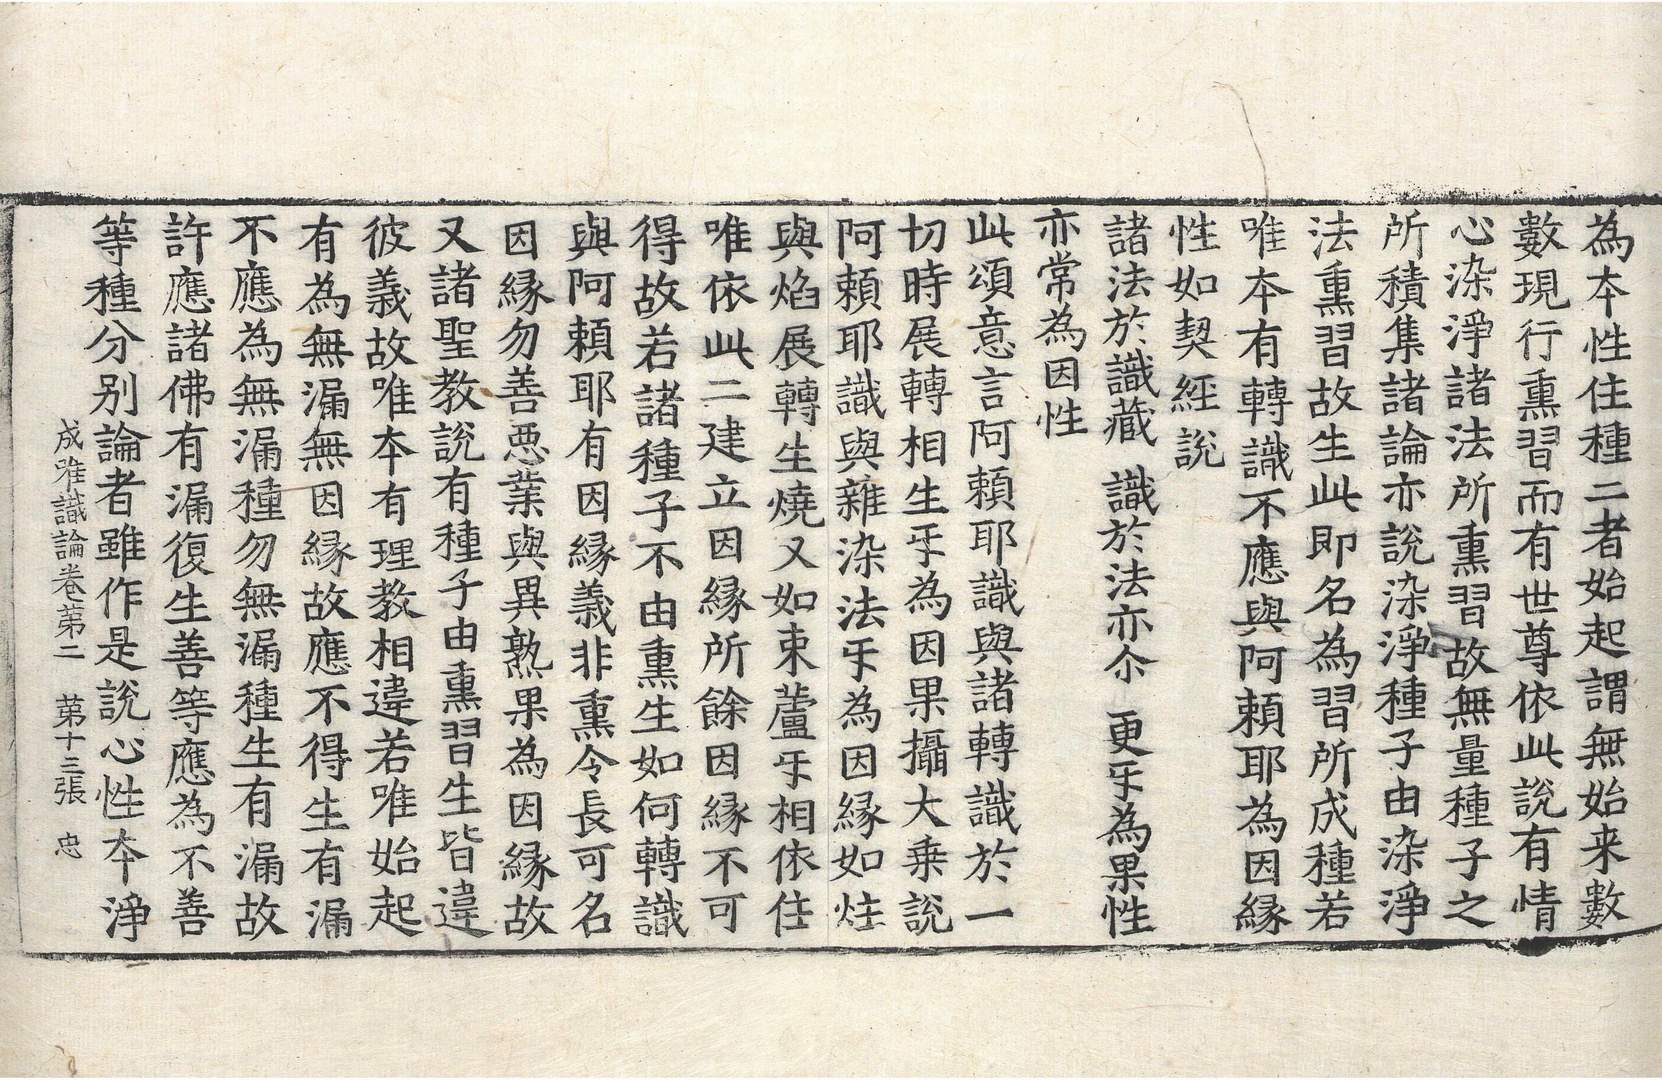 為本性住種二者始起謂無始来數
數現行熏習而有世尊依此說有情
心染淨諸法所熏習故無量種子之
所積集諸論亦說染淨種子由染淨
法熏習故生此即名為習所成種若
唯本有轉識不應與阿賴耶為因緣
性如契經說
諸法於識藏 識於法亦尒 更㸦為果性
亦常為因性
此頌意言阿賴耶識與諸轉識於一
切時展轉相生㸦為因果攝大乘說
阿賴耶識與雜染法㸦為因緣如炷
與焰展轉生燒又如束蘆㸦相依住
唯依此二建立因緣所餘因緣不可
得故若諸種子不由熏生如何轉識
與阿賴耶有因緣義非熏令長可名
因緣勿善惡業與異熟果為因緣故
又諸聖教說有種子由熏習生皆違
彼義故唯本有理教相違若唯始起
有為無漏無因緣故應不得生有漏
不應為無漏種勿無漏種生有漏故
許應諸佛有漏復生善等應為不善
等種分别論者雖作是說心性本淨
成唯識論卷第二 第十三張 忠